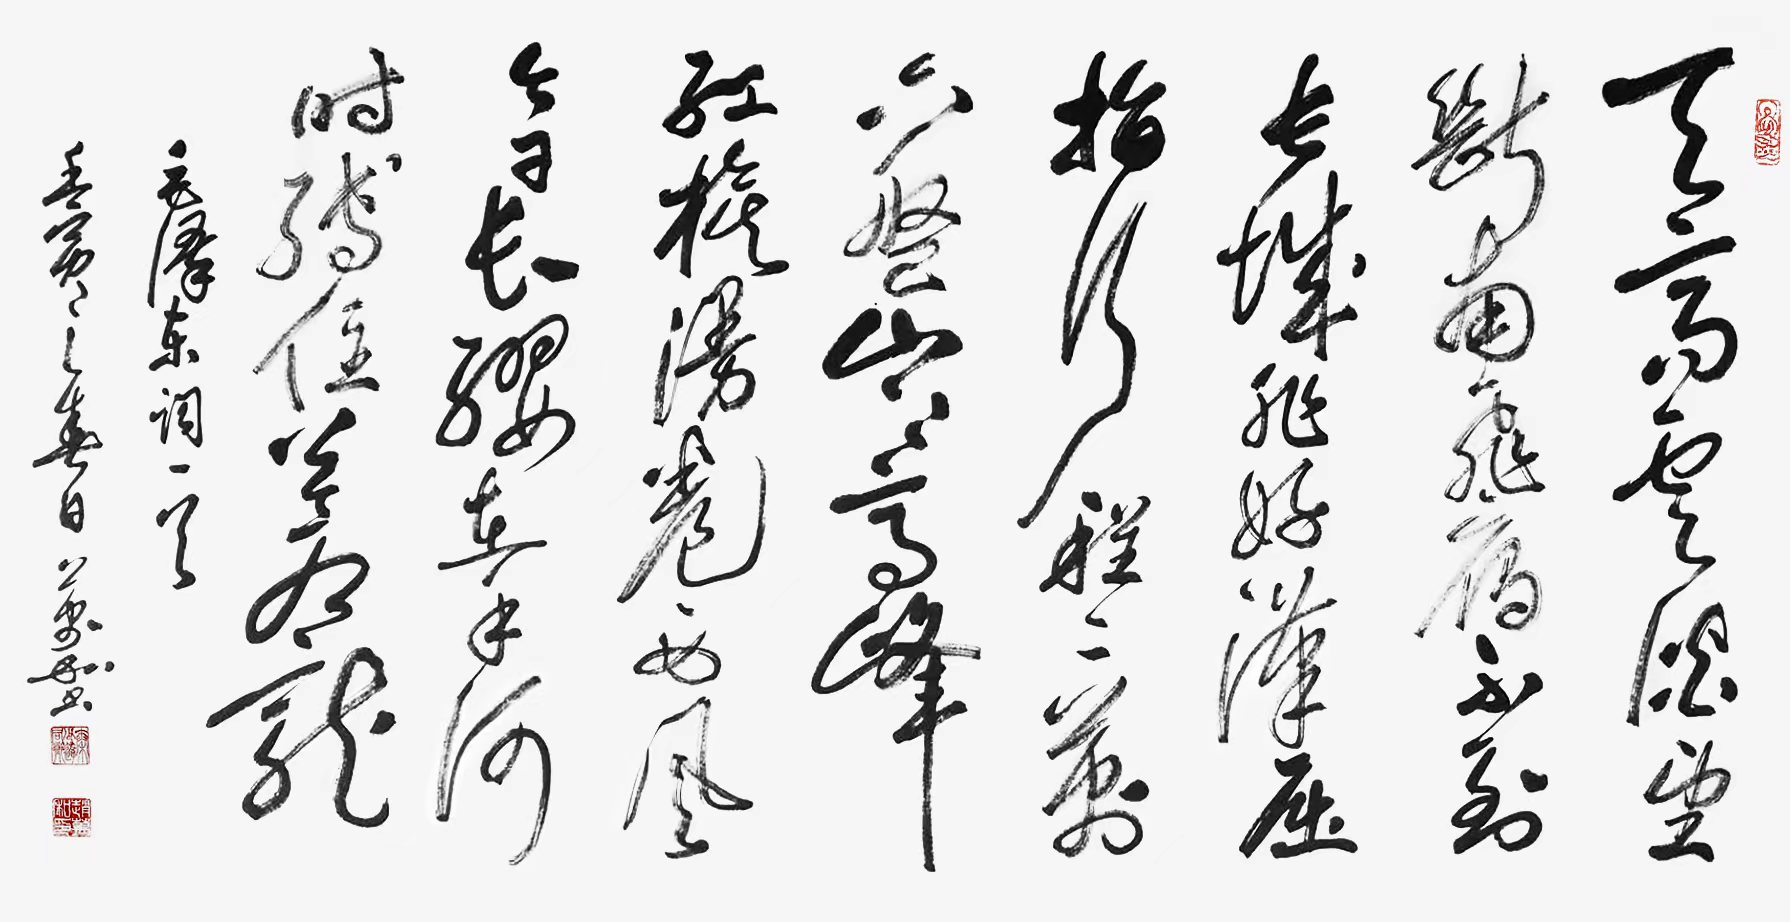 天高云澹望
斷南飛雁不到
長城非好漢屈
指行程二萬
六盤山上高峰
红旗漫卷西风
今日长缨在手何
时缚住苍龍
毛泽东词一首
壬寅之春日萬和书